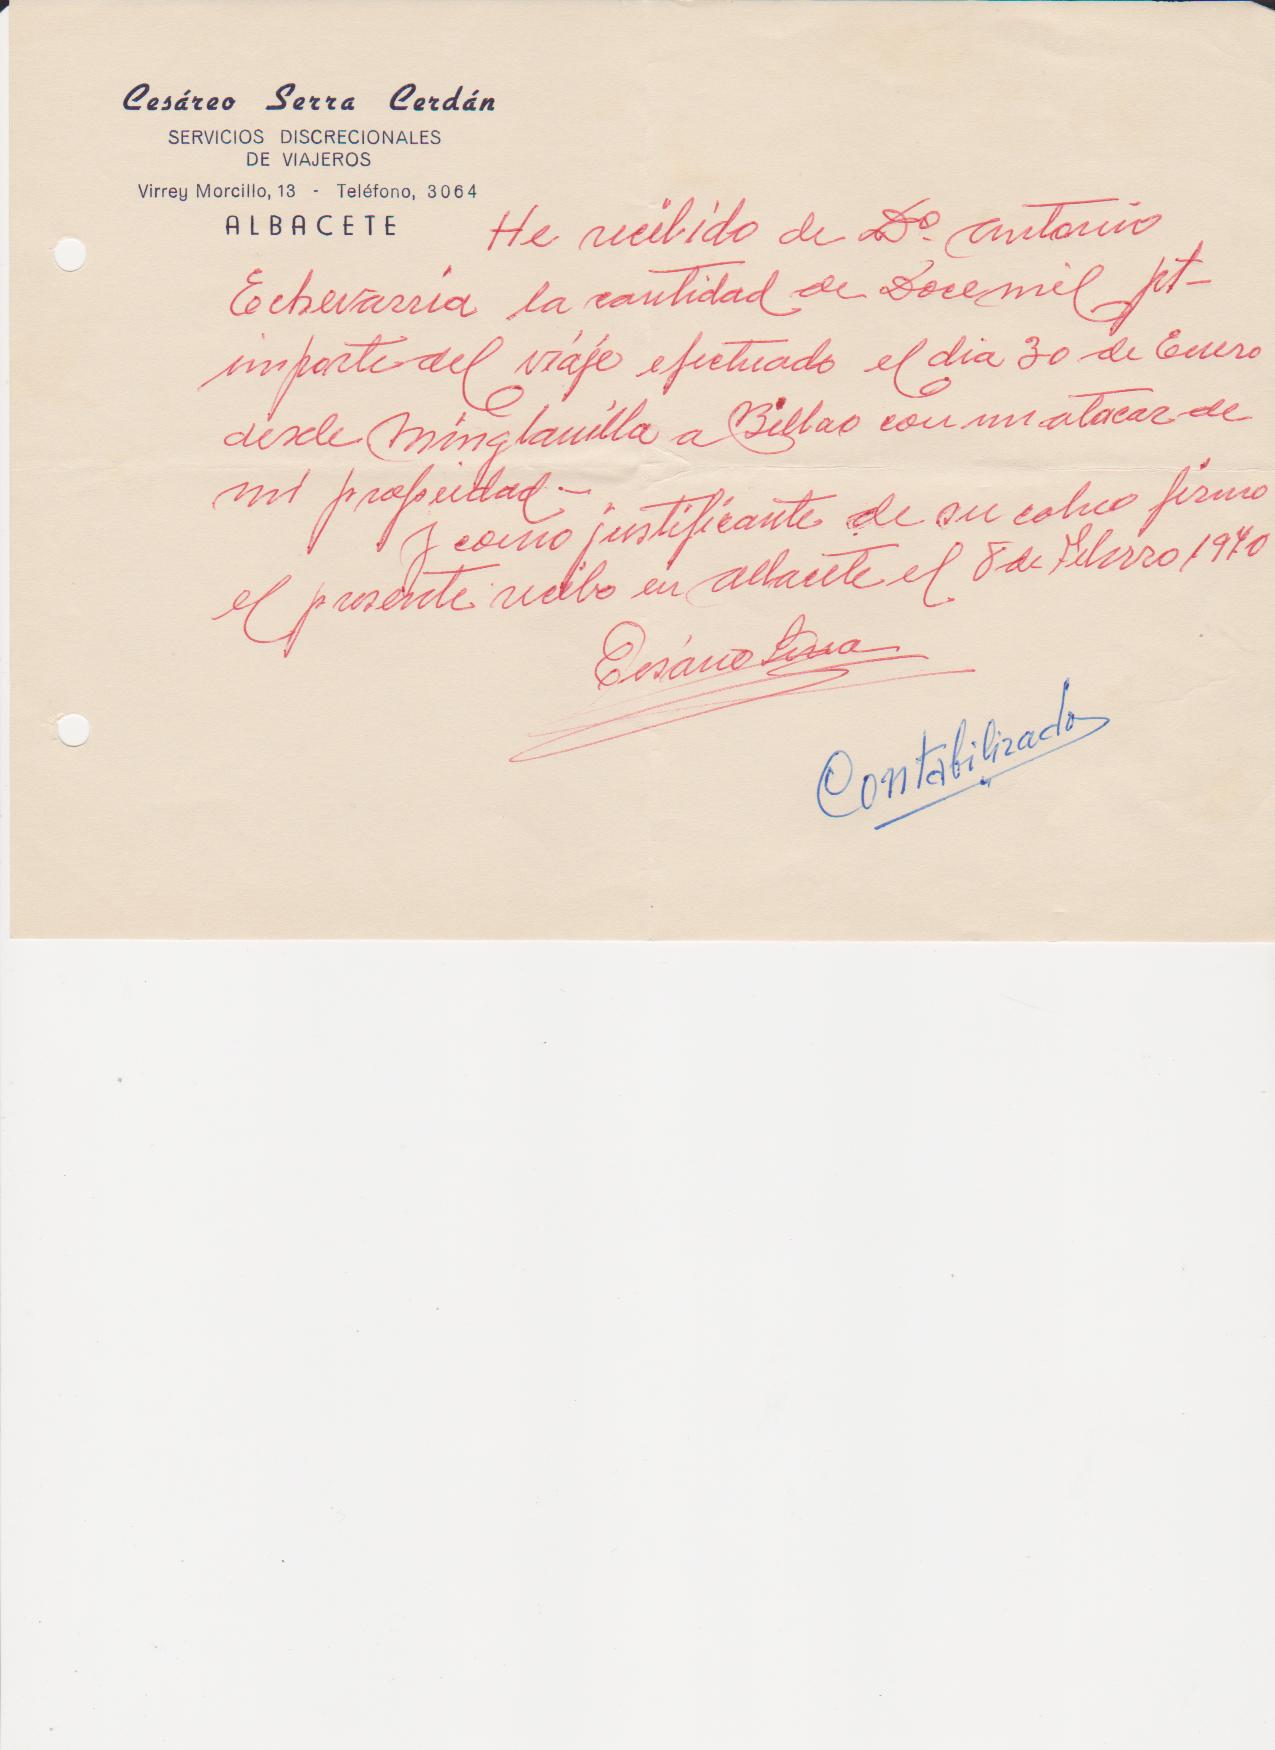 Cesáreo Serra Cerdán
SERVICIOS DISCRECIONALES
DE VIAJEROS
Virrey Morcillo, 13 - Teléfono, 3064
ALBACETE
He recibido de Dº. Antonio
Echevarria la cantidad de Doce mil pt-
importe del viaje efectuado el dia 30 de Enero
desde Minglanilla a Bilbao con un atacar de
mi propiedad-
Y como justificante de su cobro firmo
el presente recibo en Albacete el 8 de Febrero 1970
Cesáreo Serra
Contabilizado